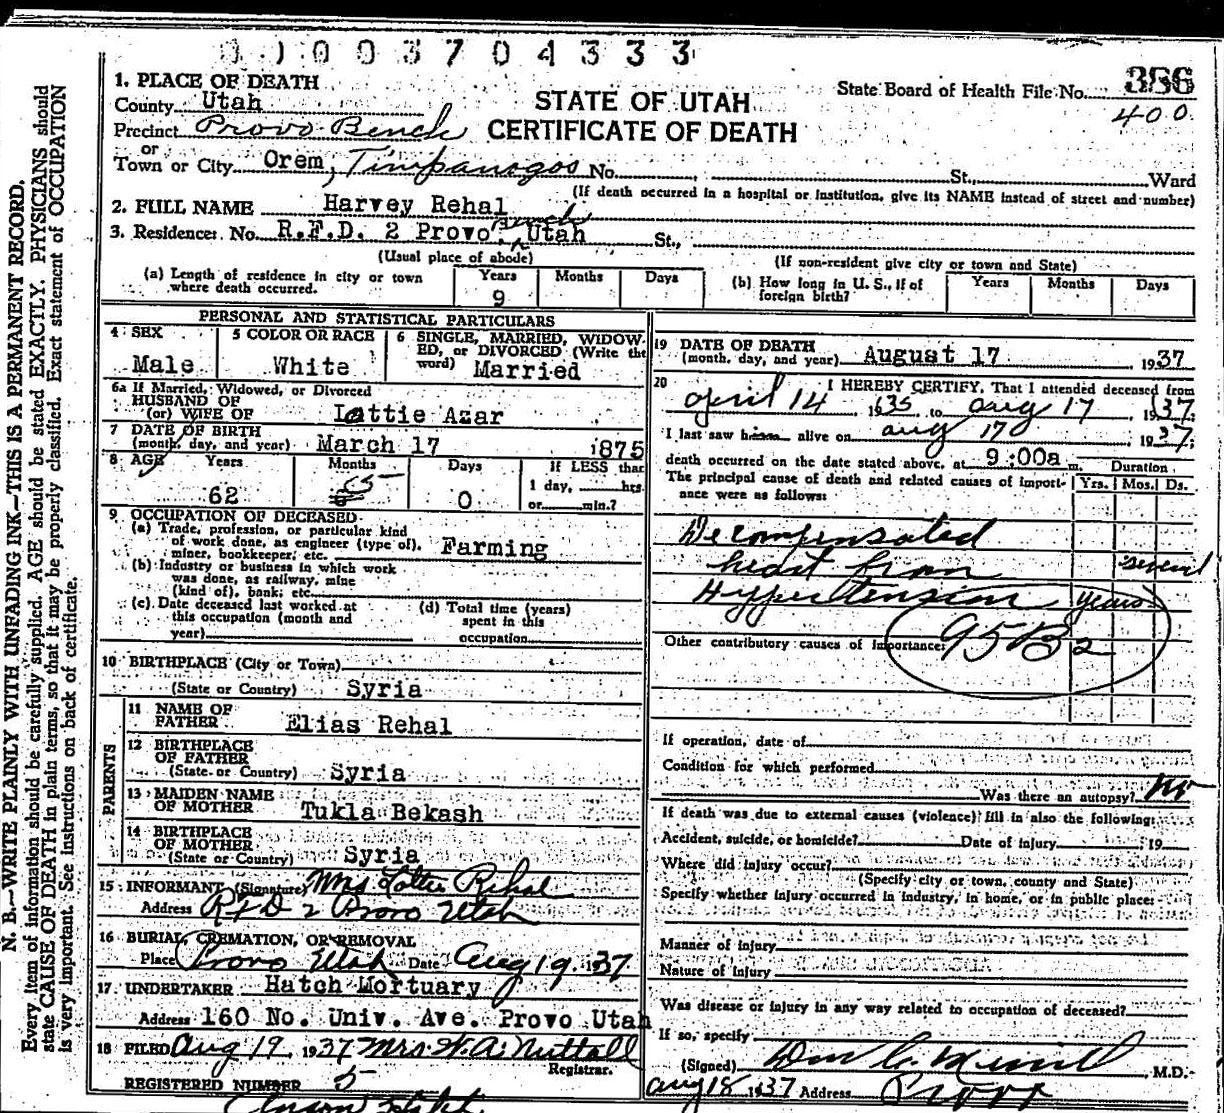 0 0 0 3 7 0 4 3 3 3
1. PLACE OF DEATH
State Board of Health File No. 356
County Utah
STATE OF UTAH
400
Precinct Provo Bench
CERTIFICATE OF DEATH
or
Town or City Orem, Timpanogos No. St., Ward
(If death occurred in a hospital or institution, give its NAME instead of street and number)
2. FULL NAME Harvey Rehal
3. Residence: No. R.F.D. 2 Provo Bench Utah St.,
(Usual place of abode) (If non-resident give city or town and State)
(a) Length of residence in city or town where death occurred. Years 9 Months Days
(b) How long in U. S., if of foreign birth? Years Months Days
PERSONAL AND STATISTICAL PARTICULARS
4 SEX Male
5 COLOR OR RACE White
6 SINGLE, MARRIED, WIDOWED, or DIVORCED (Write the word) Married
6a If Married, Widowed, or Divorced
HUSBAND OF
(or) WIFE OF Lottie Azar
7 DATE OF BIRTH
(month, day, and year) March 17 1875
8 AGE Years 62 Months 5 Days 0
If LESS than
1 day, hrs.
or min.?
9 OCCUPATION OF DECEASED
(a) Trade, profession, or particular kind
of work done, as engineer (type of), Farming
miner, bookkeeper, etc.
(b) Industry or business in which work
was done, as railway, mine
(kind of), bank, etc.
(c) Date deceased last worked at
this occupation (month and
year)
(d) Total time (years)
spent in this
occupation
10 BIRTHPLACE (City or Town)
(State or Country) Syria
PARENTS
11 NAME OF
FATHER Elias Rehal
12 BIRTHPLACE
OF FATHER
(State or Country) Syria
13 MAIDEN NAME
OF MOTHER Tukla Bekash
14 BIRTHPLACE
OF MOTHER
(State or Country) Syria
15 INFORMANT (Signature) Mrs Lottie Rehal
Address RFD 2 Provo Utah
16 BURIAL, CREMATION, OR REMOVAL
Place Provo Utah Date Aug 19, 1937
17 UNDERTAKER Hatch Mortuary
Address 160 No. Univ. Ave. Provo Utah
18 FILED Aug 19, 1937 Mrs. W. A. Nuttall
Registrar.
REGISTERED NUMBER 5
19 DATE OF DEATH
(month, day, and year) August 17 , 1937
20 I HEREBY CERTIFY, That I attended deceased from
April 14, 1935 to Aug 17, 1937,
I last saw him alive on Aug 17 1937,
death occurred on the date stated above, at 9:00a m. Duration
The principal cause of death and related causes of importance were as follows: Yrs. Mos. Ds.
Decompensated
heart from several
Hypertension years
Other contributory causes of importance: 95B2
If operation, date of
Condition for which performed
Was there an autopsy? no
If death was due to external causes (violence) fill in also the following:
Accident, suicide, or homicide? Date of injury 19
Where did injury occur?
(Specify city or town, county and State)
Specify whether injury occurred in industry, in home, or in public place:
Manner of injury
Nature of injury
Was disease or injury in any way related to occupation of deceased?
If so, specify
(Signed) Wm C. Merrill M.D.
Aug 18, 1937 Address Provo
N. B.—WRITE PLAINLY WITH UNFADING INK—THIS IS A PERMANENT RECORD.
Every item of information should be carefully supplied. AGE should be stated EXACTLY. PHYSICIANS should
state CAUSE OF DEATH in plain terms, so that it may be properly classified. Exact statement of OCCUPATION
is very important. See instructions on back of certificate.